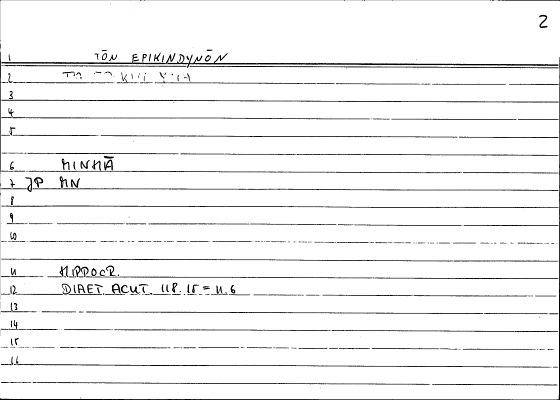 2
1 TŌN EPIKINDYNŌN
2
3
4
5
6 MINMĀ
7 JP MN
8
9
10
11 HIPPOCR.
12 DIAET. ACUT. 118.15 = 11.6
13
14
15
16